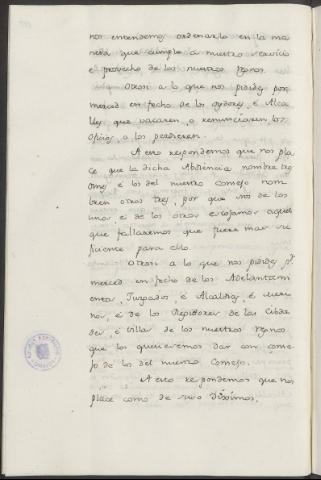 nos entendemos ordenarlo en la ma
nera que cumple a nuestro servicio
é provecho de los nuestros regnos.
Otrosi a lo que nos pidides por
merced en fecho de los oydores, é Alcal
des que vacaren, o renunciaren los
oficios, o los perdieren.
A esto respondemos que nos pla
ce que la dicha Abdiencia nombre tres
omes, é los del nuestro consejo nom
bren otros tres, por que nos de los
unos, é de los otros escojamos aquel
que fallaremos que fuere mas su
ficiente para ello.
Otrosi a lo que nos pidides pr
merced en fecho de los Adelantami
entos, Jurgados, é Alcaldias, é
é de los Regidores de las Cibda
des é villas de los nuestros regnos
que los queremos dar con conse
jo de los del nuestro Consejo.
A esto respondemos que nos
place como de suso diximos.